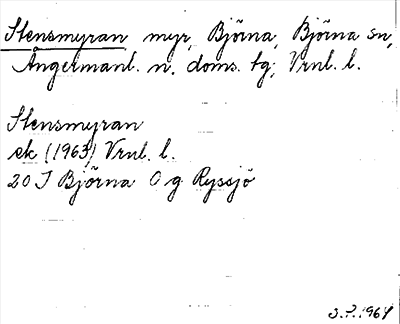 Stensmyran myr, Björna, Björna sn,
Ångermanl. n. doms. tg; Vrnl. l.
Stensmyran
ek (1963) Vrnl. l.
20 J Björna O g Ryssjö
1964